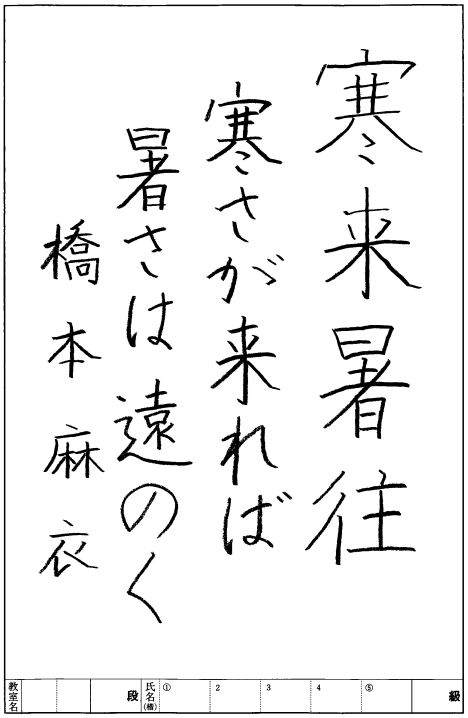 寒来暑往
寒さが来れば
暑さは遠のく
橋本麻衣
級 ⑤ 4 3 2 ① 氏名(橋) 段 教室名